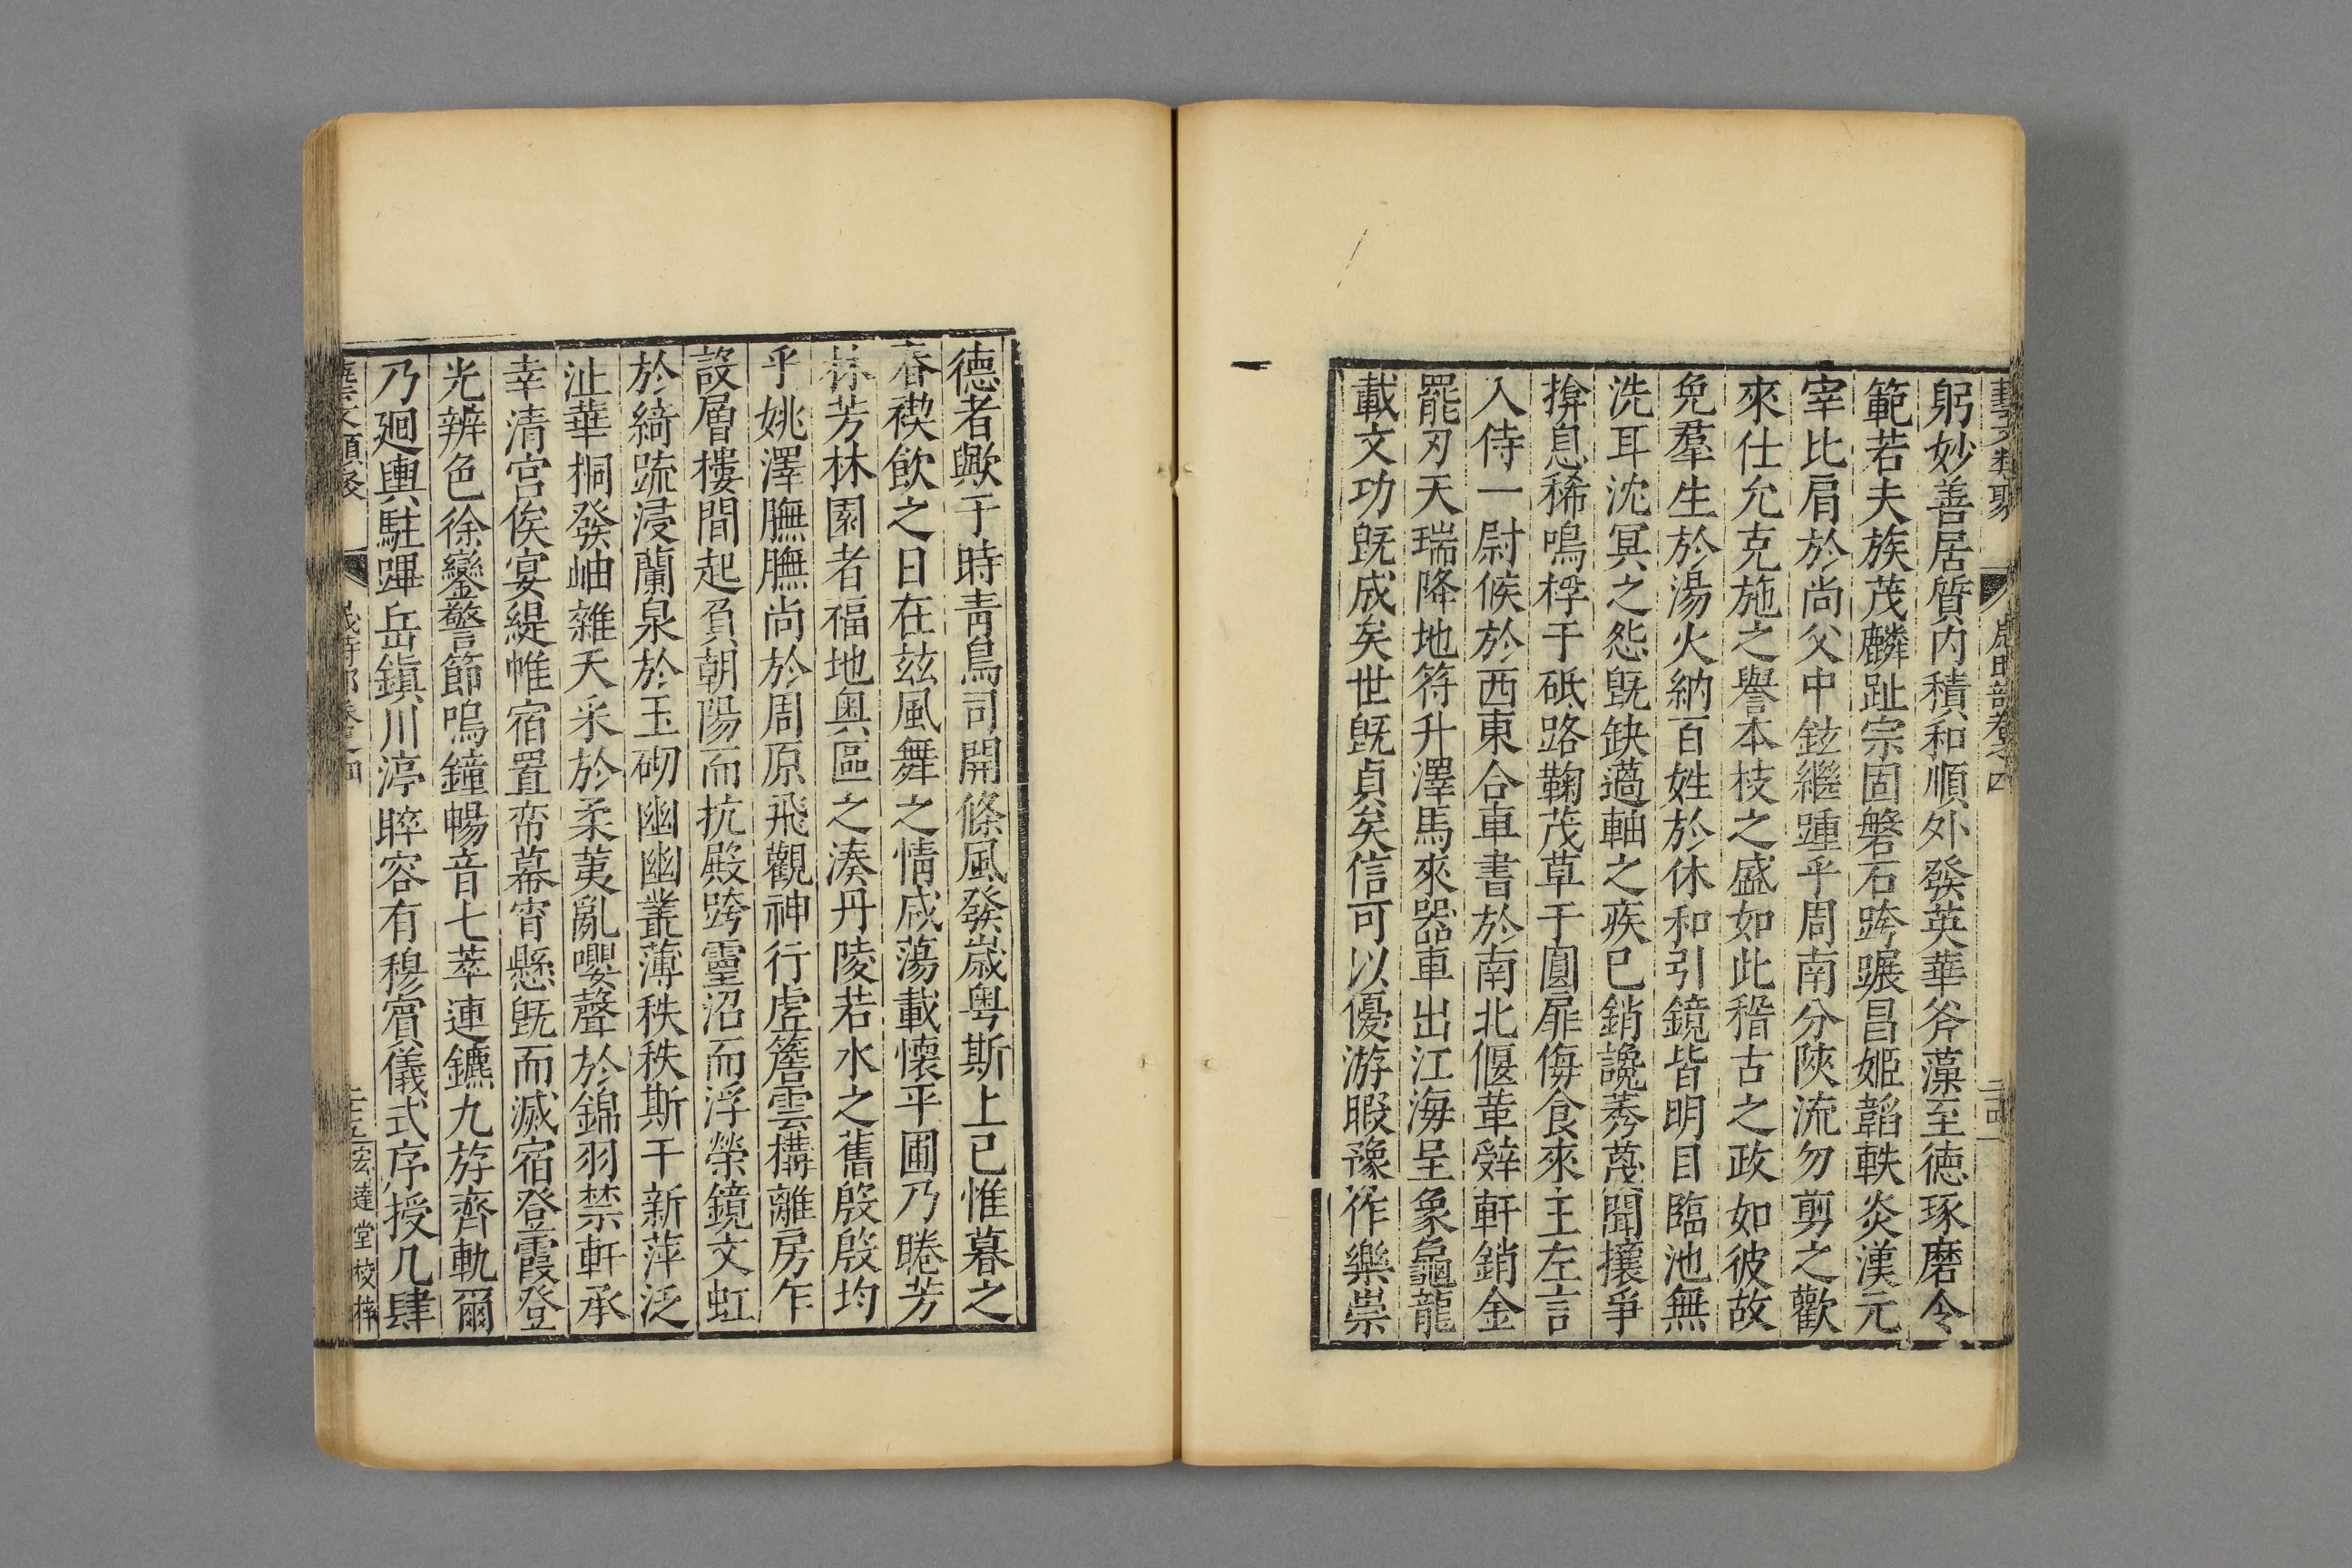 藝文類聚 歲時部卷之四 二十四
躬妙善居質内積和順外發英華斧藻至徳琢磨令
範若夫族茂麟趾宗固磐石跨躡昌姬韜軼炎漢元
宰比肩於尚父中鉉繼踵乎周南分陝流勿剪之歡
來仕允克施之譽本枝之盛如此稽古之政如彼故
免羣生於湯火納百姓於休和引鏡皆明目臨池無
洗耳沈冥之怨旣缺薖軸之疾已銷讒莠蔑聞攘爭
揜息稀鳴桴于砥路鞠茂草于圓扉侮食來王左言
入侍一尉候於西東合車書於南北偃革辤軒銷金
罷刃天瑞降地符升澤馬來器車出江海呈象龜龍
載文功旣成矣世旣貞矣信可以優游暇豫作樂崇
德者歟于時青鳥司開條風發歲粤斯上已惟暮之
春禊飲之日在茲風舞之情咸蕩載懷平圃乃睠芳
林芳林園者福地奥區之湊丹陵若水之舊殷殷均
乎姚澤膴膴尚於周原飛觀神行虛簷雲構離房乍
設層樓間起負朝陽而抗殿跨靈沼而浮榮鏡文虹
於綺疏浸蘭泉於玉砌幽幽叢薄秩秩斯干新萍泛
沚華桐發岫雜夭采於柔荑亂嚶聲於錦羽禁軒承
幸清宫俟宴緹帷宿置帟幕宵懸旣而滅宿登霞登
光辨色徐鑾警節鳴鐘暢音七萃連鑣九斿齊軌爾
乃廻輿駐蹕岳鎮川渟睟容有穆賓儀式序授几肆
藝文類聚 歲時部卷之四 二十五 宏達堂校梓